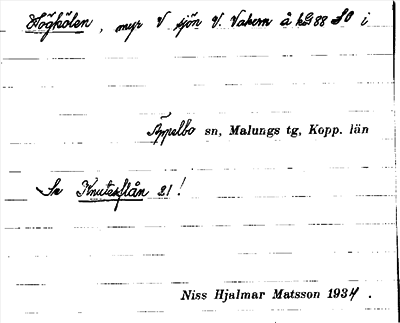 Högkölen, myr V sjön V. Vakern å kbl 88 SO i
Äppelbo sn, Malungs tg, Kopp. län
Se Knutesflån 21!
Niss Hjalmar Matsson 1934.